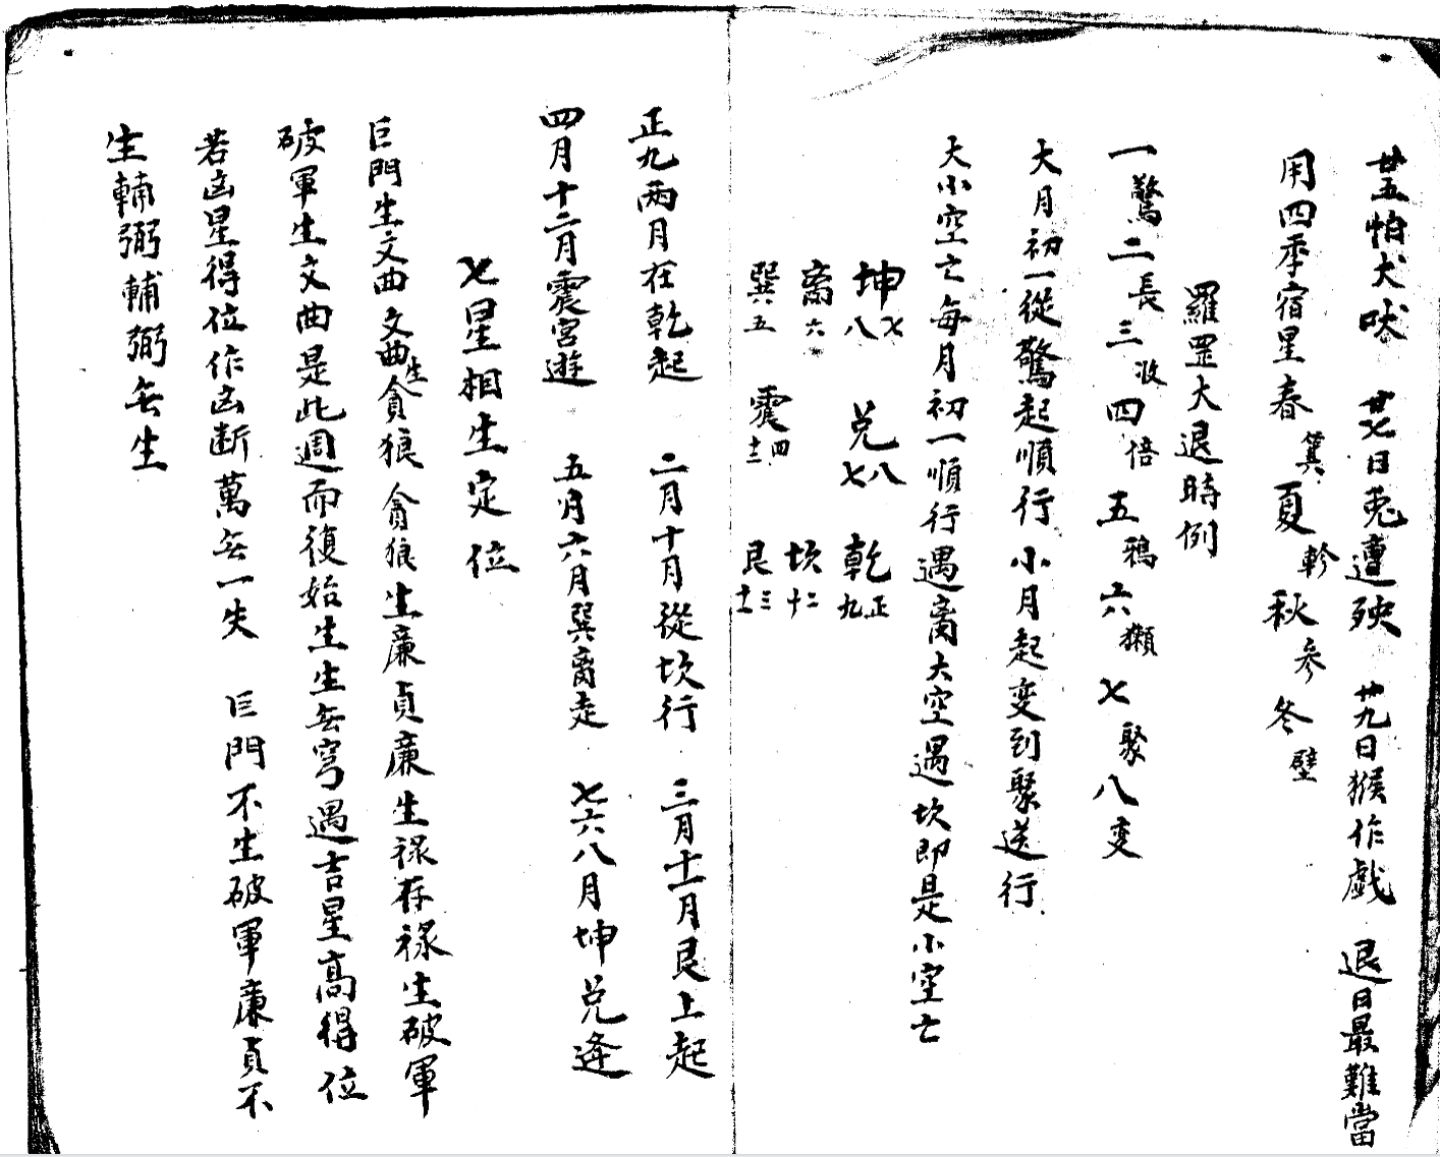 廿五怕犬吠 廿七日兎遭殃 廿九日猴作戲 退日最難當
用四季宿星春箕夏軫秋参冬壁
羅罡大退時例
一驚二長三收四倍五鴉六獺七聚八変
大月初一從驚起順行 小月起変到聚送行
大小空亡每月初一順行遇离大空遇坎即是小空亡
坤七八 兑八七 乾正九
离六 坎二十
巽五 震四十二 艮三十一
正九兩月在乾起 二月十月從坎行 三月十一月艮上起
四月十二月震宮遊 五月六月巽离走 七六八月坤兑逢
七星相生定位
巨門生文曲文曲生貪狼貪狼生廉貞廉生禄存禄生破軍
破軍生文曲是此週而復始生生无穹遇吉星高得位
若凶星得位作凶断萬无一失 巨門不生破軍廉貞不
生輔弼輔弼无生